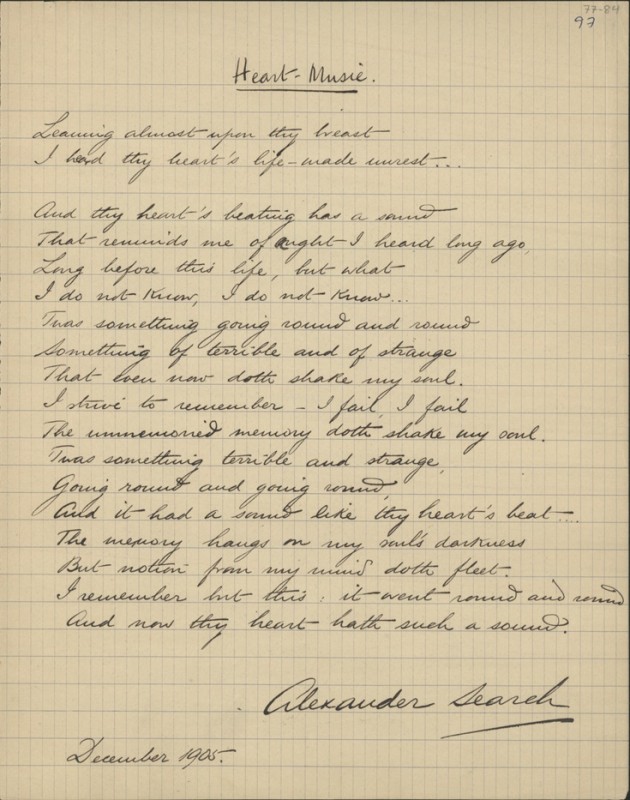 77-84
97
Heart-Music.
Leaning almost upon thy breast
I heard thy heart's life-made unrest...
And thy heart's beating has a sound
That reminds me of aught I heard long ago,
Long before this life, but what
I do not know, I do not know...
Twas something going round and round
Something of terrible and of strange
That even now doth shake my soul.
I strive to remember - I fail, I fail
The unmemoried memory doth shake my soul.
Twas something terrible and strange,
Going round and going round,
And it had a sound like thy heart's beat....
The memory hangs on my soul's darkness
But notion from my mind doth fleet.
I remember but this: it went round and round
And now thy heart hath such a sound.
Alexander Search
December 1905.